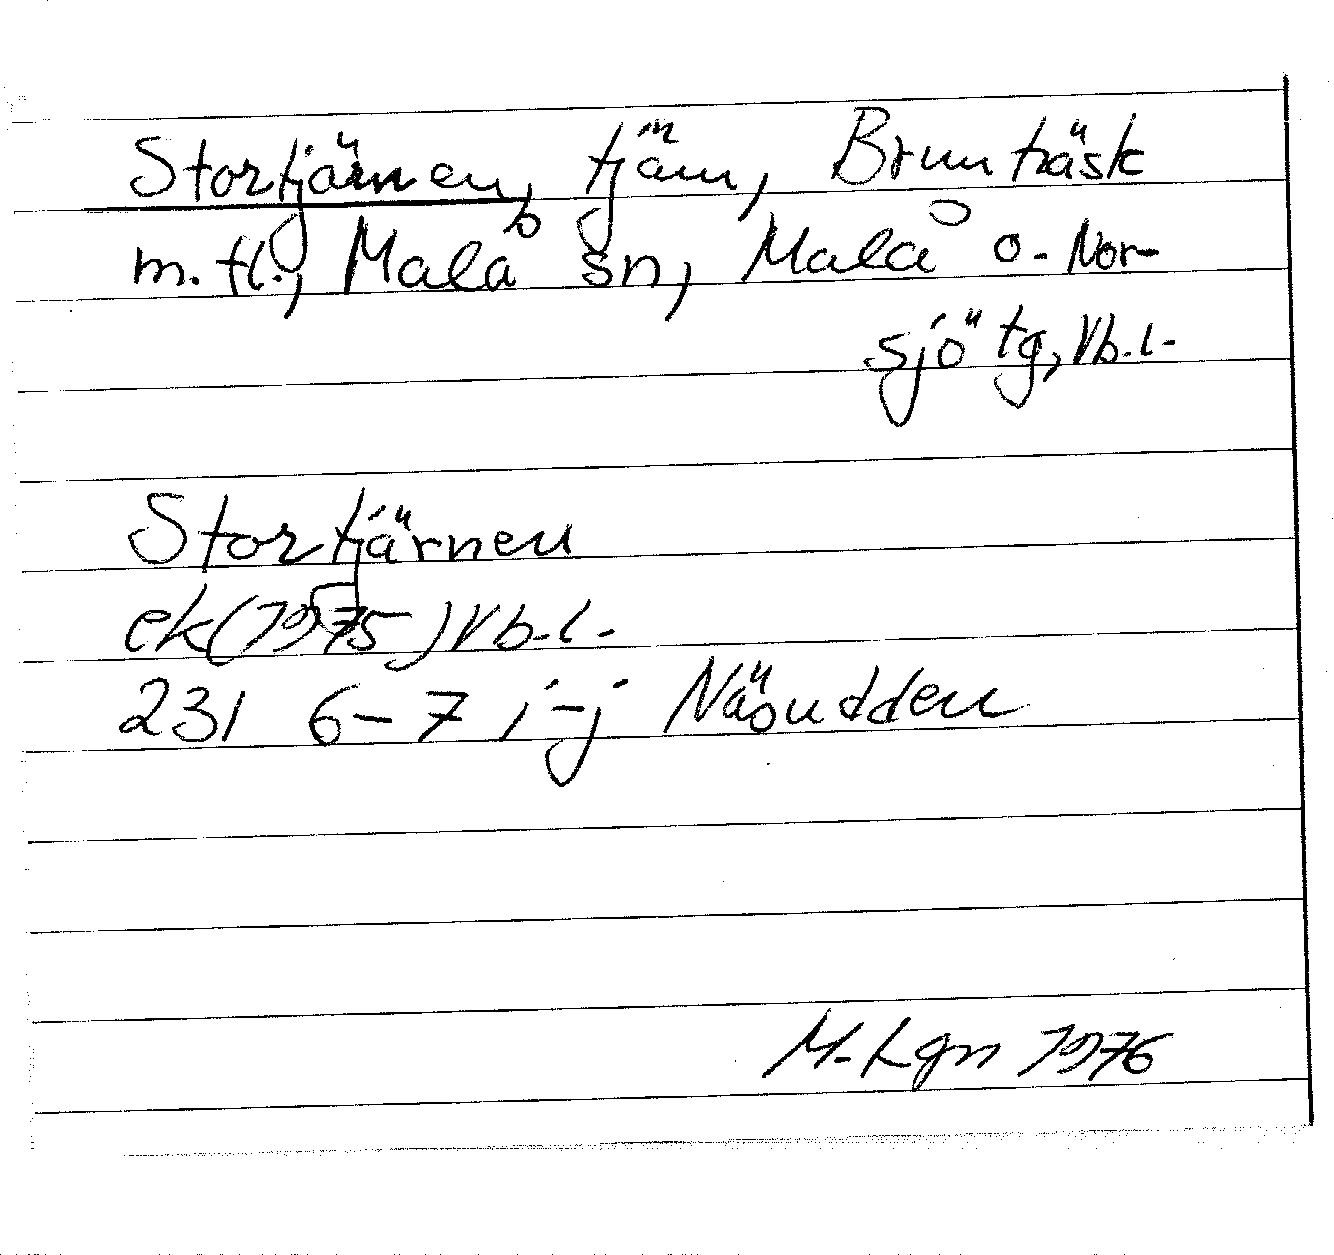 Stortjärnen, tjärn, Brunträsk
m. fl., Malå sn, Malå o. Nor-
sjö tg, Vb. l.
Stortjärnen
ek (1975) Vb. l.
231 6-7 i-j Näsudden
M. Lgn 1976